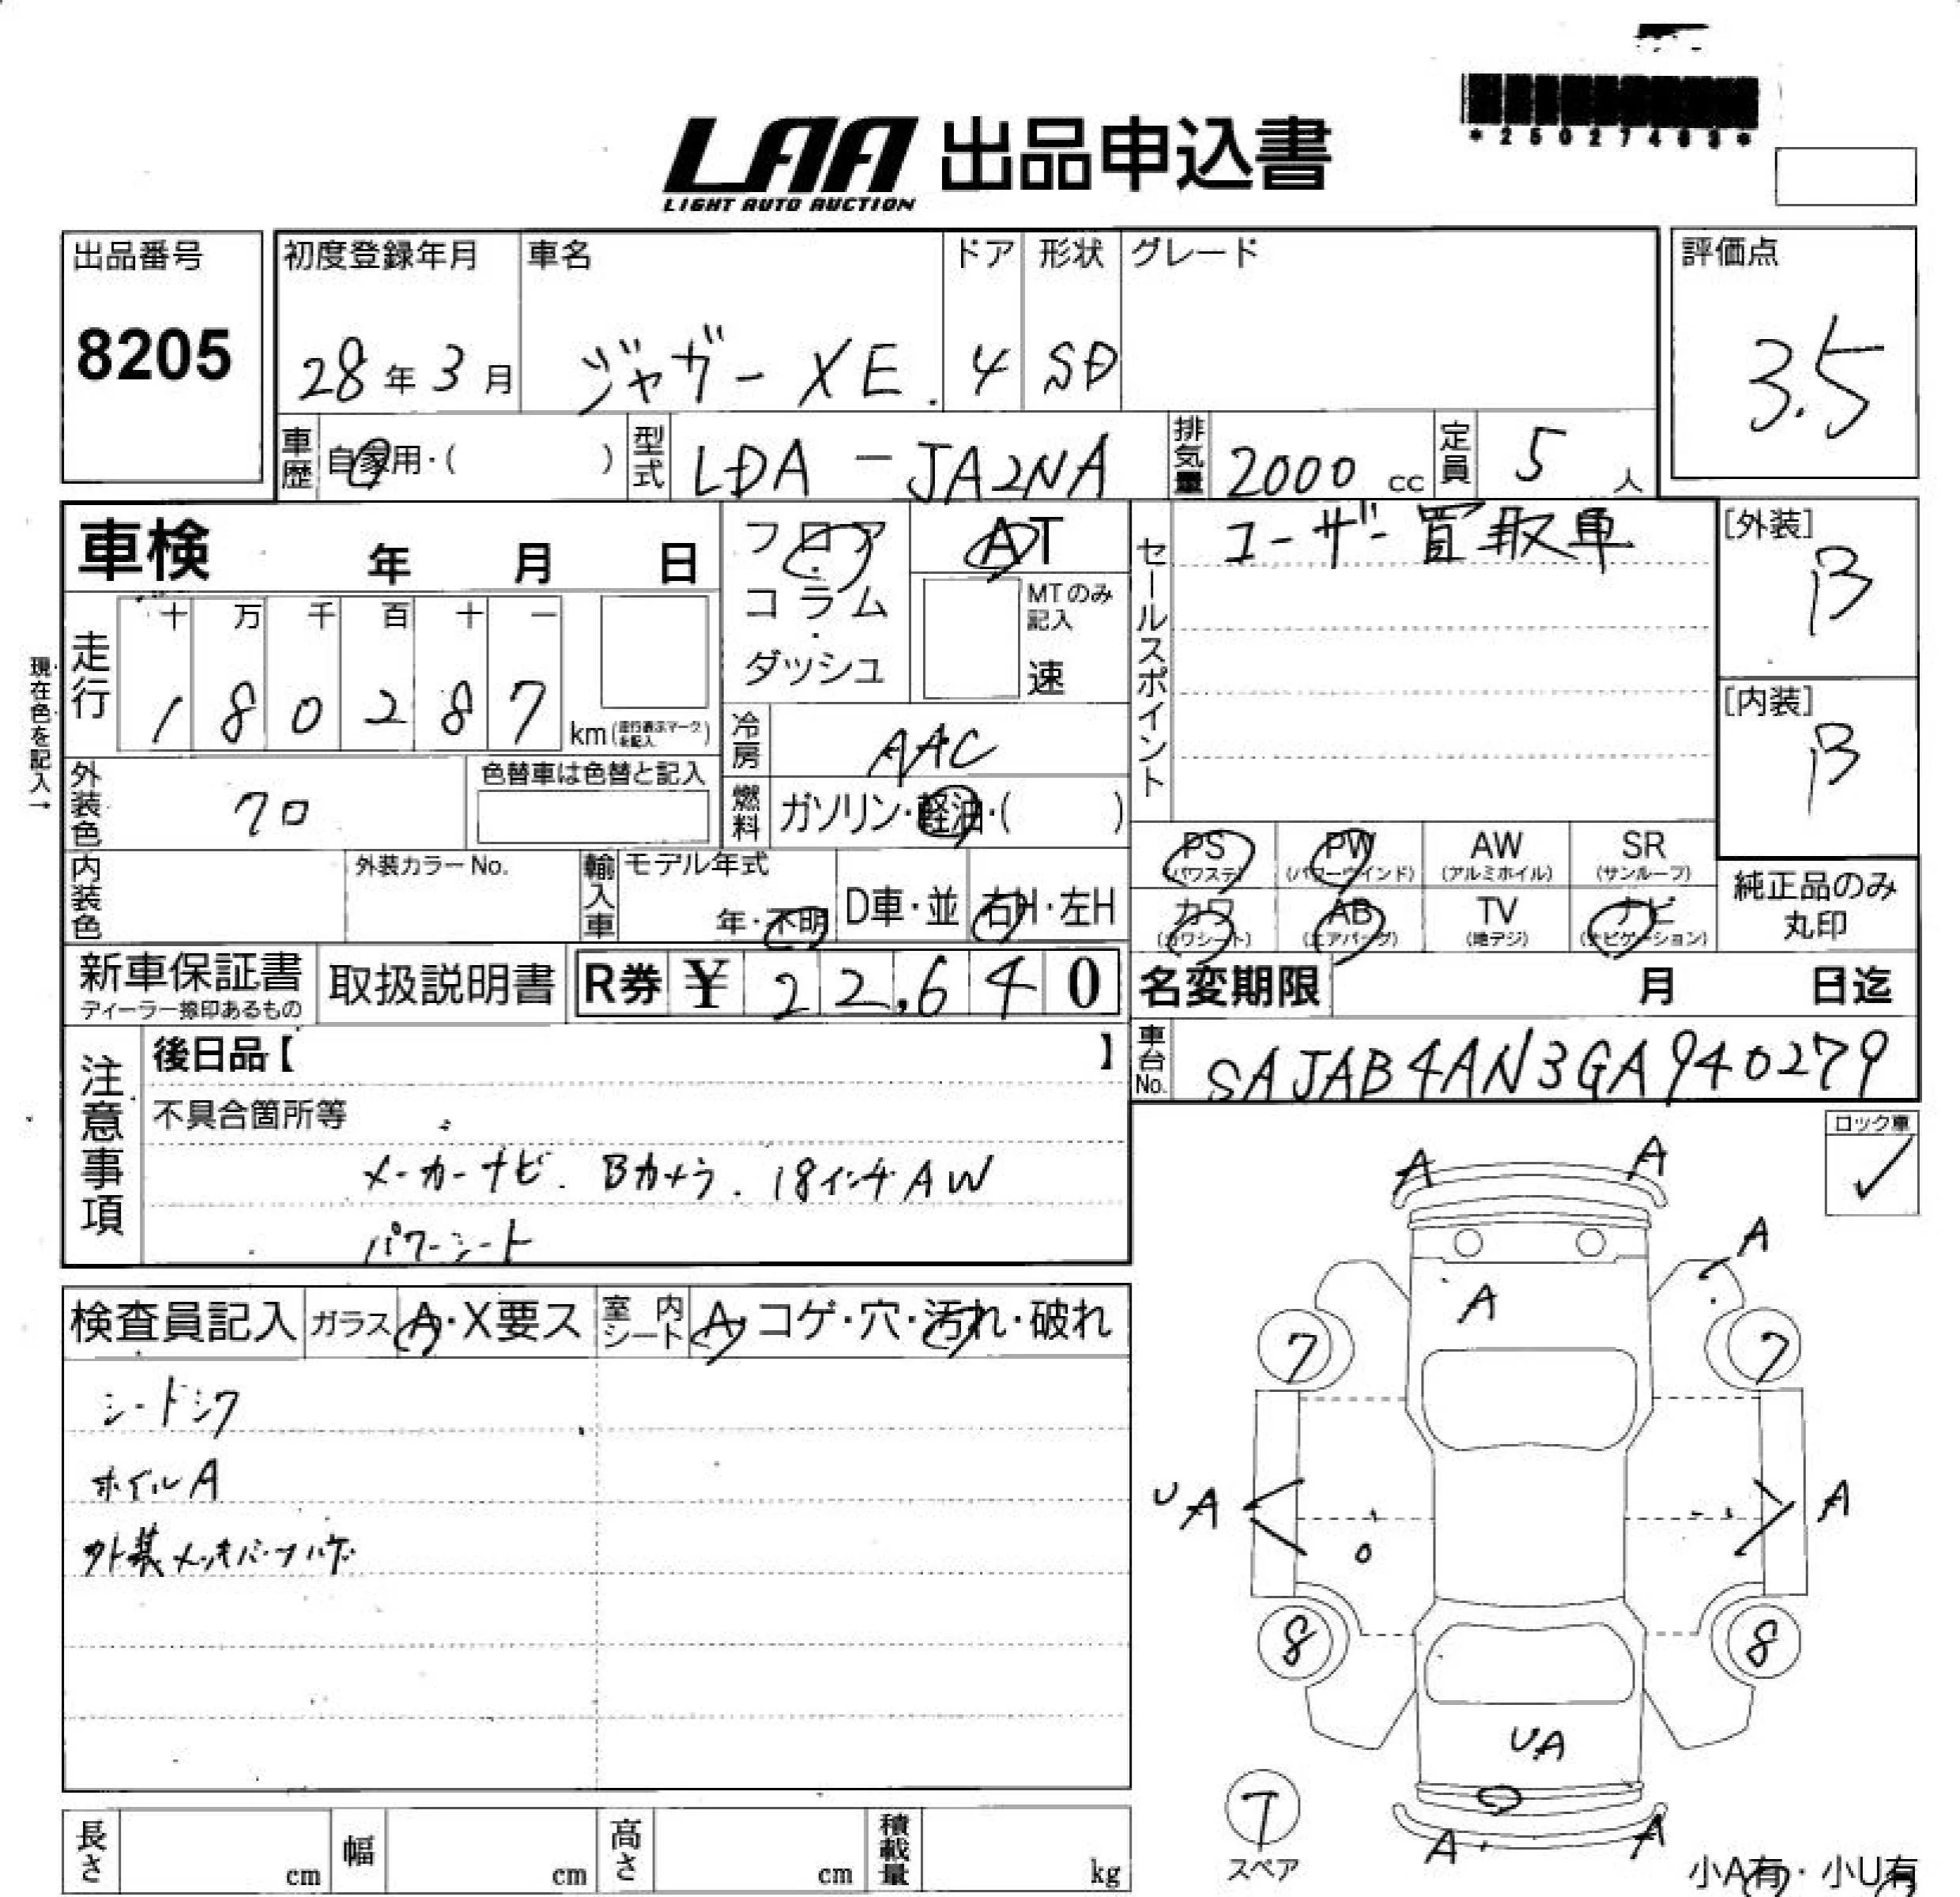 *25027483*
LAA 出品申込書
LIGHT AUTO AUCTION
出品番号
8205
初度登録年月
28年3月
車名
ジャガー XE.
ドア
4
形状
SD
グレード
評価点
3.5
車歴 自家用・( )
型式 LDA - JA2NA
排気量 2000 cc
定員 5 人
車検 年 月 日
フロア・コラム・ダッシュ
AT
MTのみ記入
速
セールスポイント
ユーザー買取車
[外装]
B
[内装]
B
現在色を記入→
走行
十 万 千 百 十 一
1 8 0 2 8 7
km(走行表示マークを記入)
冷房 AAC
外装色 クロ
色替車は色替と記入
燃料 ガソリン・軽油・( )
内装色
外装カラーNo.
輸入車
モデル年式
年・不明
D車・並
右H・左H
PS (パワステ)
PW (パワーウインド)
AW (アルミホイル)
SR (サンルーフ)
カワ (カワシート)
AB (エアバッグ)
TV (地デジ)
ナビ (ナビゲーション)
純正品のみ
丸印
新車保証書
ディーラー捺印あるもの
取扱説明書
R券 ¥ 22,640
名変期限 月 日迄
注意事項
後日品【 】
車台No. SAJAB4AN3GA940279
不具合箇所等
メーカーナビ. Bカメラ. 18インチAW
パワーシート
ロック車
✓
検査員記入
ガラス A・X要ス
室内シート A・コゲ・穴・汚れ・破れ
シートシワ
ホイルA
外装メッキパーツハゲ
A A
A
A
7 7
UA A
8 8
UA
A A
7
スペア
小A有・小U有
長さ cm
幅 cm
高さ cm
積載量 kg